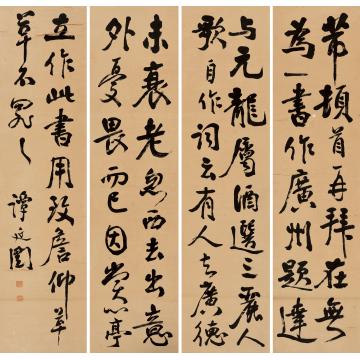 芾頓首再拜在無
為一書作廣州題達
与元龍屬酒選三麗人
歌自作詞云有人去廣德
未衰老忽而去出意
外憂畏而已因賞心亭
立作此書用致詹仰草
草不 譚延闓